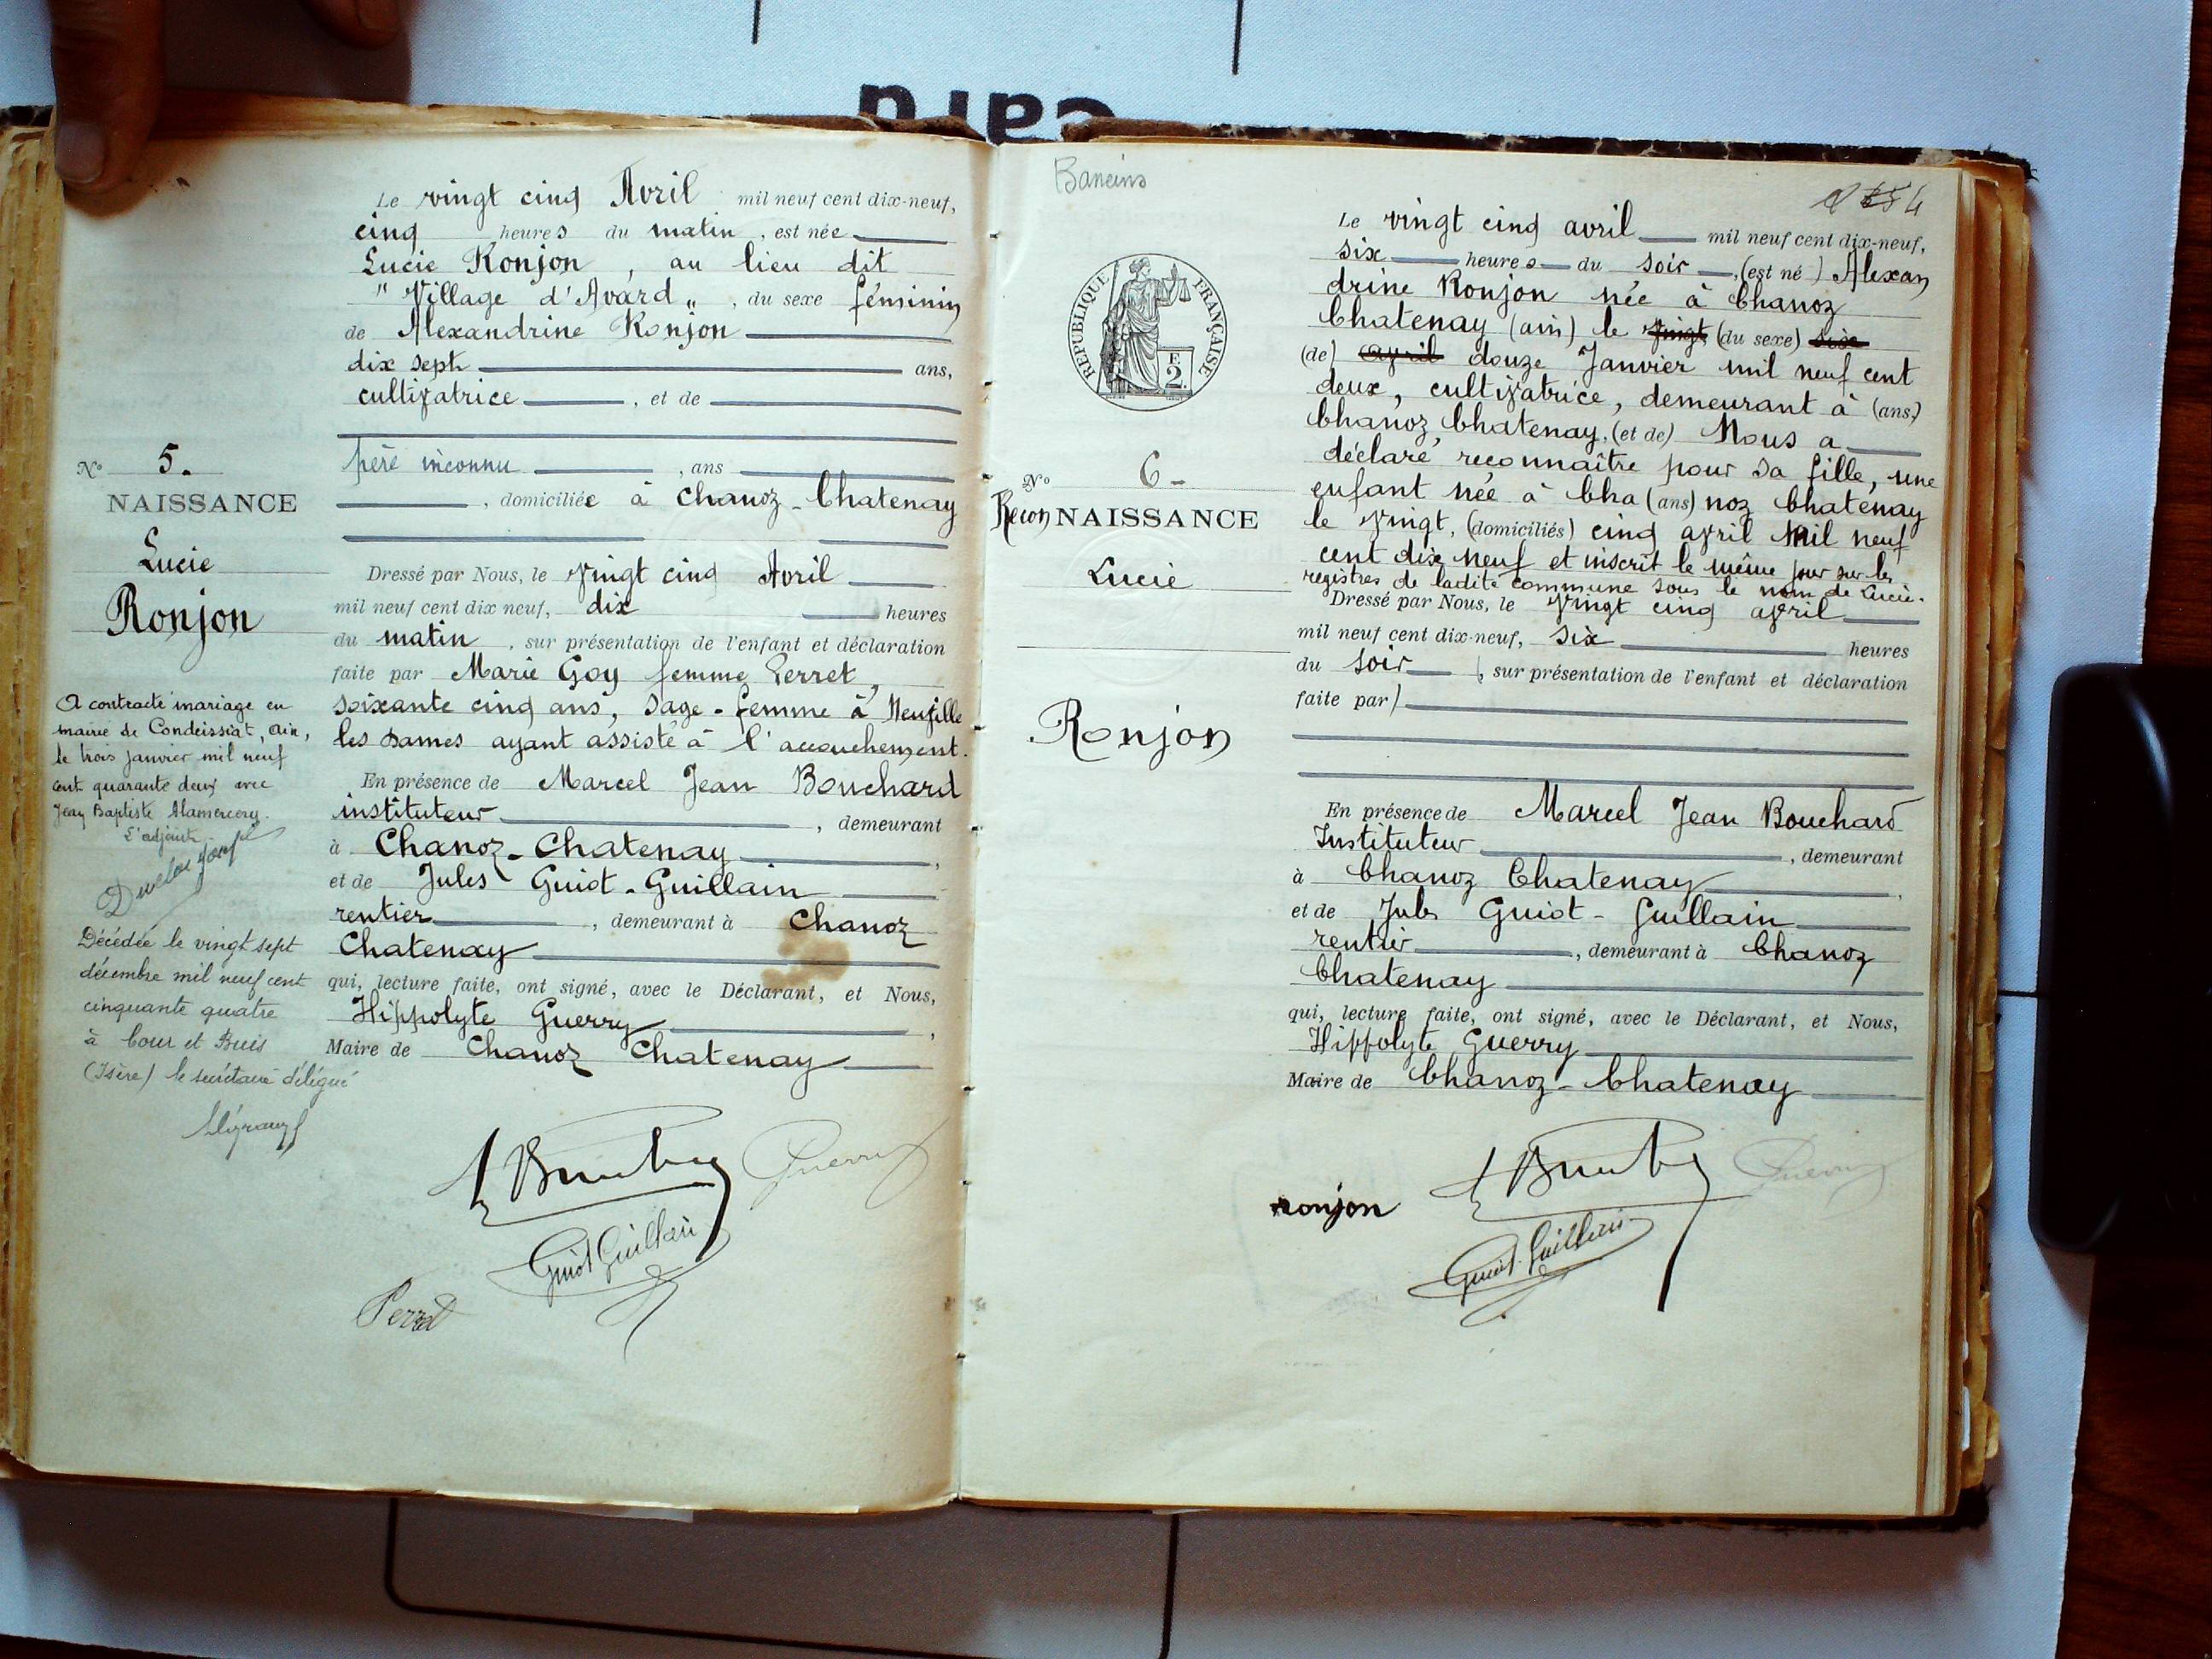 card
Le vingt cinq Avril mil neuf cent dix-neuf,
cinq heures du matin, est née
Lucie Ronjon, au lieu dit
"Village d'Avard", du sexe féminin
de Alexandrine Ronjon
dix sept ans,
cultivatrice, et de
père inconnu, ans
, domiciliée à Chanoz-Chatenay
N° 5.
NAISSANCE
Lucie
Ronjon
Dressé par Nous, le vingt cinq Avril
mil neuf cent dix neuf, dix heures
du matin, sur présentation de l'enfant et déclaration
faite par Marie Goy femme Perret,
soixante cinq ans, sage-femme à Neuville
les Dames ayant assisté à l'accouchement.
En présence de Marcel Jean Bouchard
instituteur, demeurant
à Chanoz-Chatenay,
et de Jules Guiot-Guillain
rentier, demeurant à Chanoz
Chatenay
qui, lecture faite, ont signé, avec le Déclarant, et Nous,
Hippolyte Guerry,
Maire de Chanoz Chatenay
A contracté mariage en
mairie de Condeissiat, Ain,
le trois janvier mil neuf
cent quarante deux avec
Jean Baptiste Alamercery.
L'adjoint
Décédée le vingt sept
décembre mil neuf cent
cinquante quatre
à Cour et Buis
(Isère) le secrétaire délégué
Guerry
Guiot Guillain
Perret
Baneins
Le vingt cinq avril mil neuf cent dix-neuf,
six heures du soir, (est né) Alexan
drine Ronjon née à Chanoz
Chatenay (ain) le vingt (du sexe) six
(de) avril douze Janvier mil neuf cent
deux, cultivatrice, demeurant à (ans,)
Chanoz Chatenay, (et de) Nous a
déclaré reconnaître pour sa fille, une
enfant née à Cha (ans) noz Chatenay
le vingt, (domiciliés) cinq avril mil neuf
cent dix neuf et inscrit le même jour sur les
registres de ladite commune sous le nom de Lucie.
RÉPUBLIQUE FRANÇAISE
E.
2.
N° 6-
ReconNAISSANCE
Lucie
Ronjon
Dressé par Nous, le vingt cinq avril
mil neuf cent dix-neuf, six heures
du soir (, sur présentation de l'enfant et déclaration
faite par)
En présence de Marcel Jean Bouchard
Instituteur, demeurant
à Chanoz Chatenay,
et de Jules Guiot-Guillain
rentier, demeurant à Chanoz
Chatenay
qui, lecture faite, ont signé, avec le Déclarant, et Nous,
Hippolyte Guerry
Maire de Chanoz-Chatenay
Guerry
ronjon
Guiot-Guillain